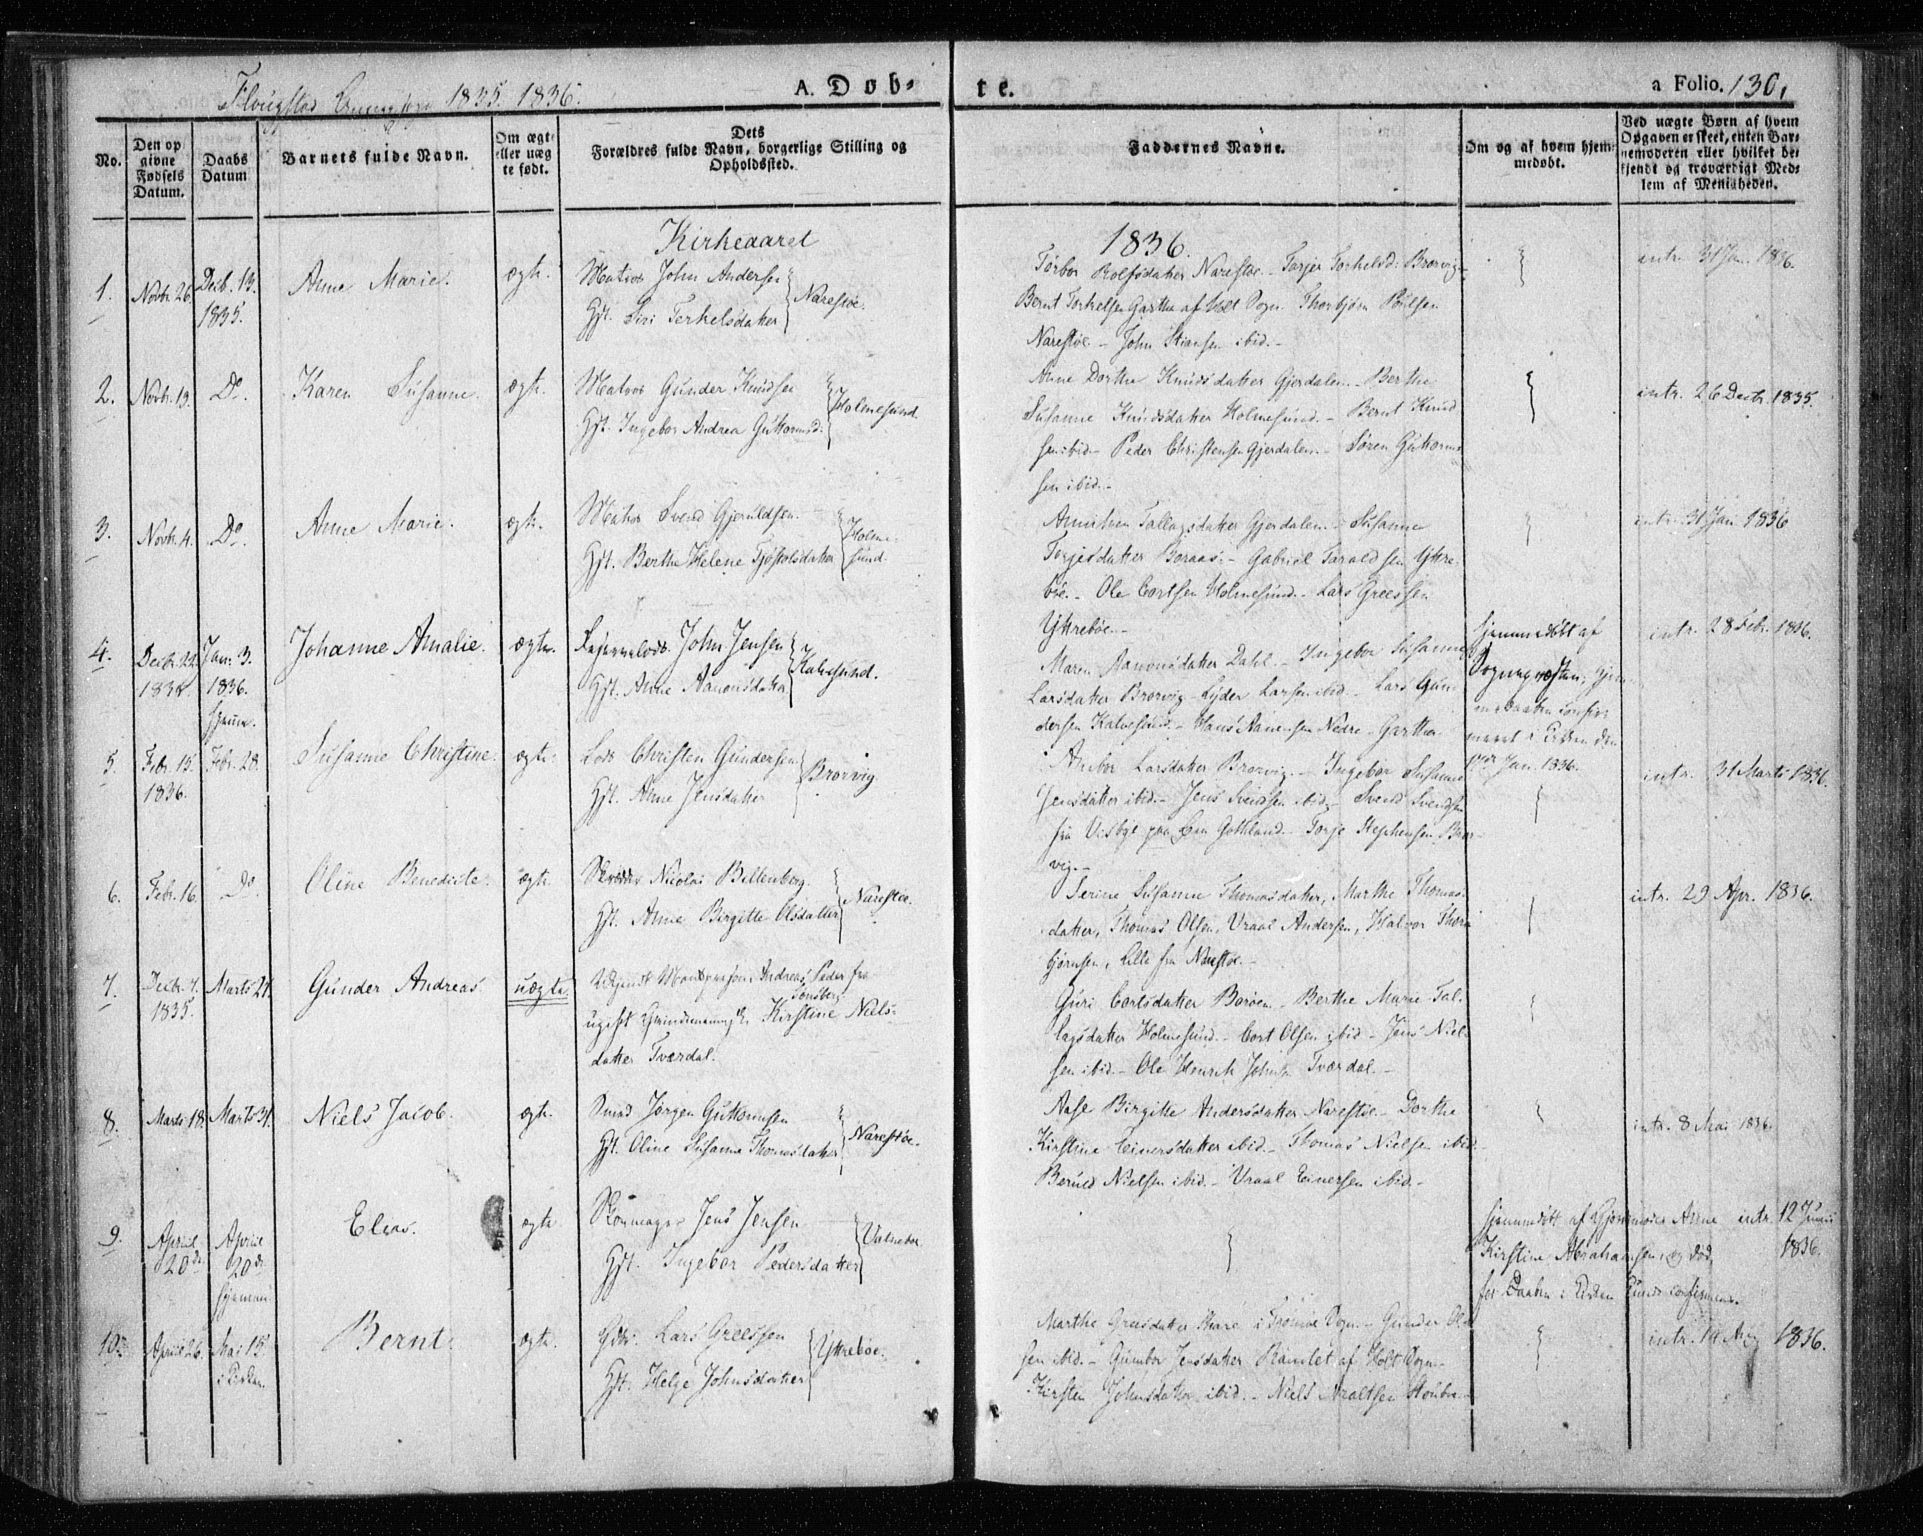 Flougstad 1835. 1836.
A. Døb-
te.
a Folio. 130.
No.
Den op
givne
Fødsels
Datum.
Daabs
Datum
Barnets fulde Navn.
Om ægt-
eller uæg
te født.
Dets
Forældres fulde Navn, borgerlige Stilling og
Opholdssted.
Faddernes Navne.
Om og af hvem hjem-
medøbt.
Ved uægte Børn af hvem
Opgaven er skeet, enten Bar-
nemoderen eller hvilket be-
kjendt og troværdigt Med-
lem af Menigheden.
Kirkeaaret
1836.
1.
Novbr. 26.
Decb. 13.
1835.
Anne Marie.
ægte.
Matros John Andersen
Hst. Siri Terkelsdatter
Narestøe.
Torbor Rolfsdatter Narestøe - Torjer Torkelsd: Brorvig -
Bernt Torkelsen Gartha af Holt Sogn. Thorbjørn Poulsen
Narestøe - John Stiansen ibid. -
intr. 31 Jan. 1836.
2.
Novbr. 13.
Do.
Karen Susanne.
ægte.
Matros Gunder Knudsen
Hst. Ingebor Andrea Guttormsd.
Holmesund.
Anne Dorthe Knudsdatter Gjerdalen - Berthe
Susanne Knudsdatter Holmesund. - Bernt Knud
sen ibid. - Peder Christensen Gjerdalen. - Søren Guttorm
sen ibid. -
intr. 26 Decbr. 1835.
3.
Novbr. 4.
Do.
Anne Marie.
ægte.
Matros Svend Gjeruldsen.
Hst. Berthe Helene Tjøstolsdatter
Holme-
sund.
Tallagsdatter Gjerdalen. - Susanne
Torjesdatter Boraas. - Gabriel Taraldsen Yttre-
bøe. - Ole Cortsen Holmesund. - Lars Greessen
Yttrebøe. -
intr. 31 Jan. 1836
4.
Decbr. 22.
1835.
Jan. 3.
1836.
hjemme.
Johanne Amalie.
ægte.
John Jensen
Hst. Anne Aanonsdatter
Kalvesund.
Maren Aanonsdatter Dahl. - Ingebor Susanne
Larsdatter Brorvig - Lyder Larsen ibid - Lars Gun
dersen Kalvesund. - Hans Aanensen Nedre - Gartha
hjemmedøbt af
Sognepræsten,
Daaben confir-
meret i Kirken den
Jan. 1836.
intr. 28 Febr. 1836.
5.
Febr. 15.
1836.
Febr. 28.
Susanne Christine.
ægte.
Lods Christen Gundersen
Hst. Anne Jensdatter
Brorvig
Anebor Larsdatter Brorvig. - Ingebor Susanne
Jensdatter ibid. - Jens Svendsen ibid. - Svend Svendsen
fra Visbye paa Gottland - Torje Stephensen Bror-
vig. -
intr. 31 Marts 1836.
6.
Febr. 16.
Do.
Oline Benedicte.
ægte.
Nicolai Biltenberg.
Hst. Anne Birgitte Olsdatter
Narestøe.
Serine Susanne Thomasdatter, Marthe Thomas
datter, Thomas Olsen, Vraal Andersen, Halvor Thor
bjørnsen, Alle fra Narestøe. -
intr. 29 Apr. 1836.
7.
Decbr. 7.
1835.
Marts 27.
Gunder Andreas
uægte
Andreas Peder fra
Tønsberg
ugift Kirstine Niels-
datter Tværdal.
Guri Cortsdatter Borøen. - Berthe Marie Tal-
lagsdatter Holmesund. - Cort Olsen ibid. - Jens Niel-
sen ibid. - Ole Henrik Tværdal. -
8.
Marts 18.
Marts 31.
Niels Jacob.
ægte.
Smed Jørgen Guttormsen
Hst. Oline Susanne Thomasdatter
Narestøe.
Aase Birgitte Andersdatter Narestøe - Dorthe
Kirstine Einersdatter ibid. - Thomas Nielsen ibid.
Beruld Nielsen ibid. - Vraal Einersen ibid. -
intr. 8 Mai 1836.
9.
April
20de
April
20de
hjemme
Elias.
ægte.
Skomager Jens Jensen
Hst. Ingebor Pedersdatter
Valnebøe
hjemmedøbt af Gjordemoder Anne
Kirstine Abrahamsen, og død,
før Daaben i Kirken kunde confirmeres.
intr. 12 Junii
1836.
10.
April 26.
Mai 15.
i Kirken.
Bernt.
ægte.
Gdbr. Lars Greessen
Hst. Helge Johnsdatter
Yttrebøe.
Marthe Greesdatter Skare i Trømøe Sogn. - Gunder Ol-
sen ibid. - Gumbor Jensdatter Ramlet af Holt Sogn -
Kirsten Johnsdatter ibid. - Niels
intr. 14 Aug 1836.